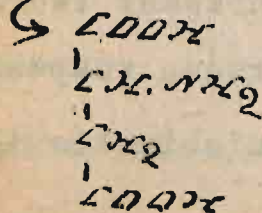 COOH
CH.NH2
CH2
COOH